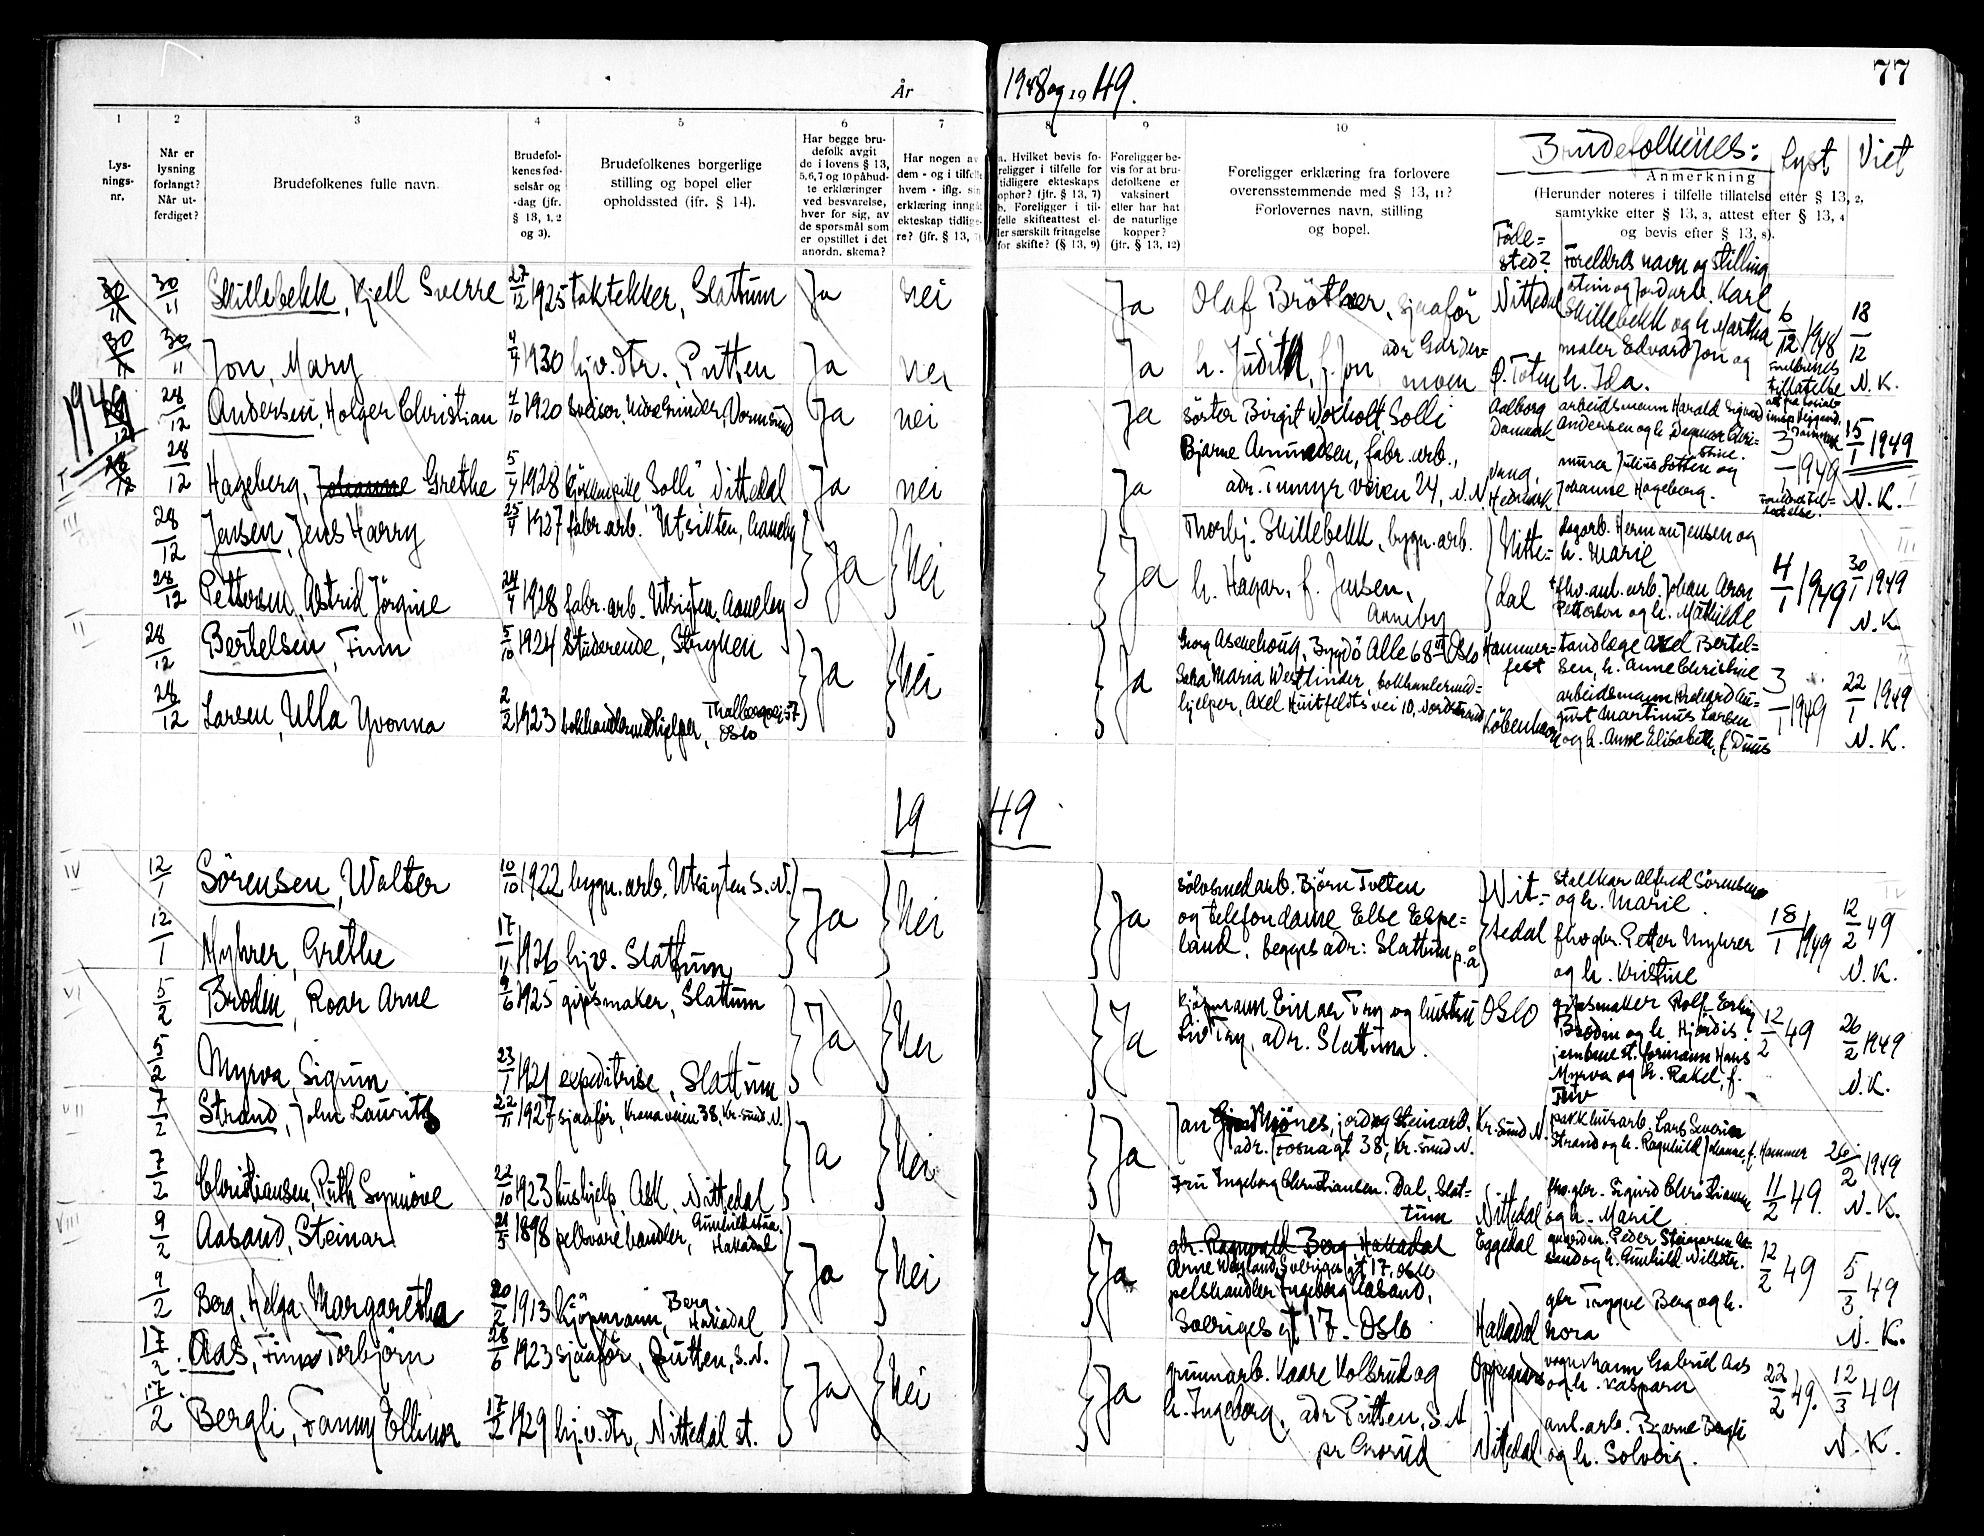 År 1948 og 1949.
77
1 2 3 4 5 6 7 8 9 10 11
Lys-
nings-
nr.
Når er
lysning
forlangt?
Når ut-
ferdiget?
Brudefolkenes fulle navn.
Brudefol-
kenes fød-
selsår og
-dag (jfr.
§ 13, 1, 2
og 3).
Brudefolkenes borgerlige
stilling og bopel eller
opholdssted (jfr. § 14).
Har begge bru-
defolk avgit
de i lovens § 13,
5, 6, 7 og 10 påbud-
te erklæringer
ved besvarelse,
hver for sig, av
de spørsmål som
er opstillet i det
anordn. skema?
Har nogen av
dem - og i tilfelle
hvem - iflg. sin
erklæring inngått
ekteskap tidlige-
re? (jfr. § 13, 7)
a. Hvilket bevis fo-
religger i tilfelle for
tidligere ekteskaps
ophør? (jfr. § 13, 7)
b. Foreligger i til-
felle skifteattest el-
ler særskilt fritagelse
for skifte? (§ 13, 9)
Foreligger be-
vis for at bru-
defolkene er
vaksinert
eller har hat
de naturlige
kopper?
(jfr. § 13, 12)
Foreligger erklæring fra forlovere
overensstemmende med § 13, 11?
Forlovernes navn, stilling
og bopel.
Brudefolkenes:
Anmerkning
(Herunder noteres i tilfelle tillatelse efter § 13, 2,
samtykke efter § 13, 3, attest efter § 13, 4
og bevis efter § 13, 8).
Lyst
Viet
Føde-
sted?
Foreldres navn og stilling
30/11 30/11 Skillebekk, Kjell Sverre 27/12 1925 taktekker, Slattum Ja Nei
Ja Olaf Bröther, sjaafør Nittedal
stein og jordarb. Karl
Skillebekk og h. Martha 6/12 1948 18/12
30/11 30/11 Jon, Mary 4/7 1930 hjv. dtr., Rutten Ja Nei
Ja h. Judith, f. Jon adr Garder-
moen Ø. Toten
maler Edvard Jon og
h. Ida.
Foreldrenes
tillatelse N. K.
1949
28/12 28/12 Andersen, Holger Christian 4/10 1920 Sveiser, Vormsund Ja Nei
Ja søster Birgit Woxholt, Solli
Aalborg
Danmark
arbeidsmann Harald Sigvard
Andersen og h. Dagmar Chri-
stine.
3/1 1949 15/1 1949
I 28/12 28/12 Hageberg, Johanne Grethe 5/7 1928 kjökkenpike "Solli" Nittedal Ja Nei
Ja Bjarne Amundsen, fabr. arb.,
adr. Tunmyrveien 24, N.N.
Vang,
Hedmark
murer Julius Sotten og
Johanne Hageberg.
Foreldretil-
latelse.
N. K. I
III 28/12 Jensen, Jens Harry 25/4 1927 fabr. arb. "Utsikten, Aaneby Ja Nei
Ja Thorbj. Skillebekk, bygn. arb.
h. Hagar, f. Jensen,
Aaneby
Nitte-
dal
dagarb. Herman Jensen og
h. Marie
4/1 1949 30/1 1949 III
28/12 Pettersen, Astrid Jörgine 24/7 1928 fabr. arb. Utsigten, Aaneby
fhv. anl. arb. Johan Aron
Petterson og h. Mathilde
N. K.
II 28/12 Bertelsen, Finn 5/10 1924 Studerende, Stryken Ja Nei
Ja Georg Aschehoug, Bygdö Alle 68 III Oslo
Hammer-
fest
tandlæge Axel Bertel-
sen, h. Anne Christine
3/1 1949 22/1 1949 II
28/12 Larsen, Ulla Yvonna 2/2 1923 bokhandlermedhjelper, Thalbergvei 57
Oslo
Maria Westlinder, bokhanlermed-
hjelper, Axel Huitfeldts vei 10, Nordstrand
Köbenhavn
arbeidsmann Au-
gust Martinus Larsen
og h. Anne Elisabeth, f. Duus
N. K.
1949
IV 12/1 Sörensen, Walter 10/10 1922 bygn. arb. Utsigten S. N. Ja Nei
Ja sölvsmedarb. Björn Tveten
og telefondame Else Espe-
land, begges adr: Slattum p.å
Nit-
tedal
stallkar Alfred Sörensen
og h. Marie
18/1 1949 12/2 49 IV
12/1 Myhrer, Grethe 17/11 1926 hjv. Slattum
fhv gbr. Petter Myhrer
og h. Kristine
N. K.
VI 5/2 Broden, Roar Arne 9/6 1925 gipsmaker, Slattum Ja Nei
Ja kjöpmann Einar Try og hustru
Liv Try, adr. Slattum.
Oslo
gipsmaker Rolf Erling
Broden og h. Hjördis.
12/2 49 26/2 1949
5/2 Myrva, Sigrun 23/1 1921 expeditrise, Slattum
jernbanest. formann Hans
Myrva og h. Rakel, f.
N. K.
VII 7/2 Strand, John Laurits 22/11 1927 sjaafør, Kranaveien 38, Kr. sund N. Ja Nei
Ja Jan Mjönes, jord og Steinarb.
adr. Fosnagt 38, Kr. sund N.
Kr. sund N.
pakkhusarb. Lars Severin
Strand og h. Ragnhild Johanne, f. Hammer
26/2 1949
7/2 Christiansen, Ruth Synnöve 22/10 1923 hushjelp, Ask, Nittedal
Fru Ingeborg Christiansen. Dal, Slat-
tum
Nittedal
fhv. gbr. Sigurd Christiansen
og h. Marie
11/2 49. N. K.
VIII 9/2 Aasand, Steinar 21/5 1898 pelsvarehandler, Hakadal Ja Nei
Ja gbr. Ragnvald Berg, Hakadal
Arne Sverigesgt 17, Oslo
pelshandler Ingeborg Aasand,
Sveriges gt 17. Oslo
Eggedal
gaardbr. Peder Steinarsen Aa-
sand og h. Gunhild Nilsdtr.
12/2 49 5/3 49
9/2 Berg, Helga Margaretha 20/2 1913 kjöpmann, Berg
Hakadal
Hakadal
gbr Trygve Berg og h.
Nora
N. K.
17/2 Aas, Finn Torbjörn 28/6 1923 sjaafør, Rutten, S. N. Ja Nei
Ja grunnarb. Kaare Kolsrud og
h. Ingeborg, adr Rutten, S. N
pr Grorud
Oppegård
vognmann Gabriel Aas
og h. Kaspara
22/2 49. 12/3 49
17/2 Bergli, Fanny Ellinor 17/2 1929 hj. v. dtr, Nittedal st.
Nittedal
anl. arb. Bjarne Bergli
og h. Solveig.
N. K.